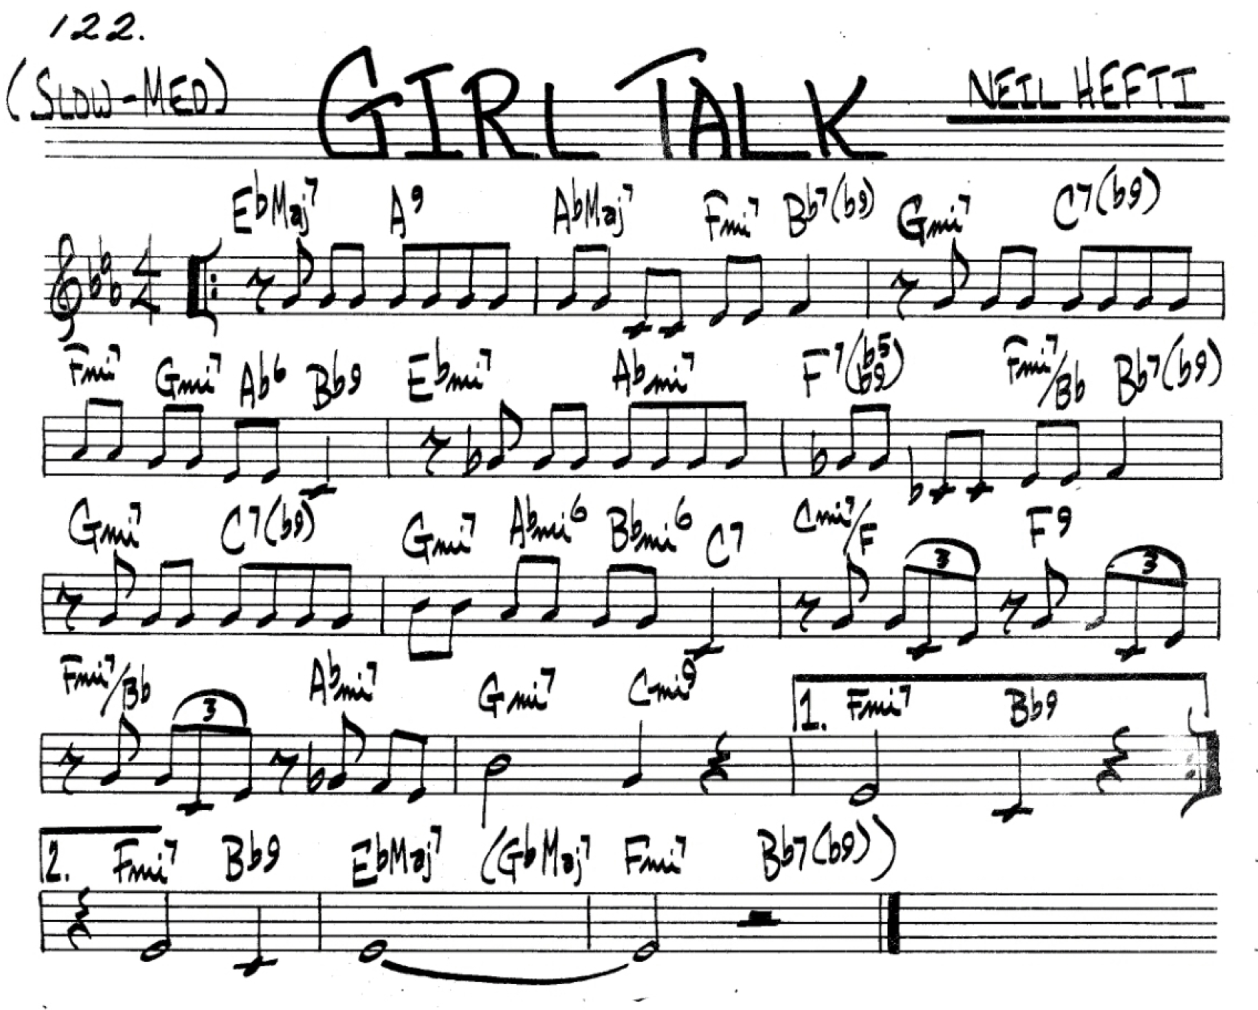 122.
(SLOW-MED) GIRL TALK NEIL HEFTI
EbMaj7 A9 AbMaj7 Fmi7 Bb7(b9) Gmi7 C7(b9)
4 4
Fmi7 Gmi7 Ab6 Bb9 Ebmi7 Abmi7 F7(b5 b9) Fmi7/Bb Bb7(b9)
Gmi7 C7(b9) Gmi7 Abmi6 Bbmi6 C7 Cmi7/F F9
3 3
Fmi7/Bb Abmi7 Gmi7 Cmi9 1. Fmi7 Bb9
3
2. Fmi7 Bb9 EbMaj7 (GbMaj7 Fmi7 Bb7(b9))